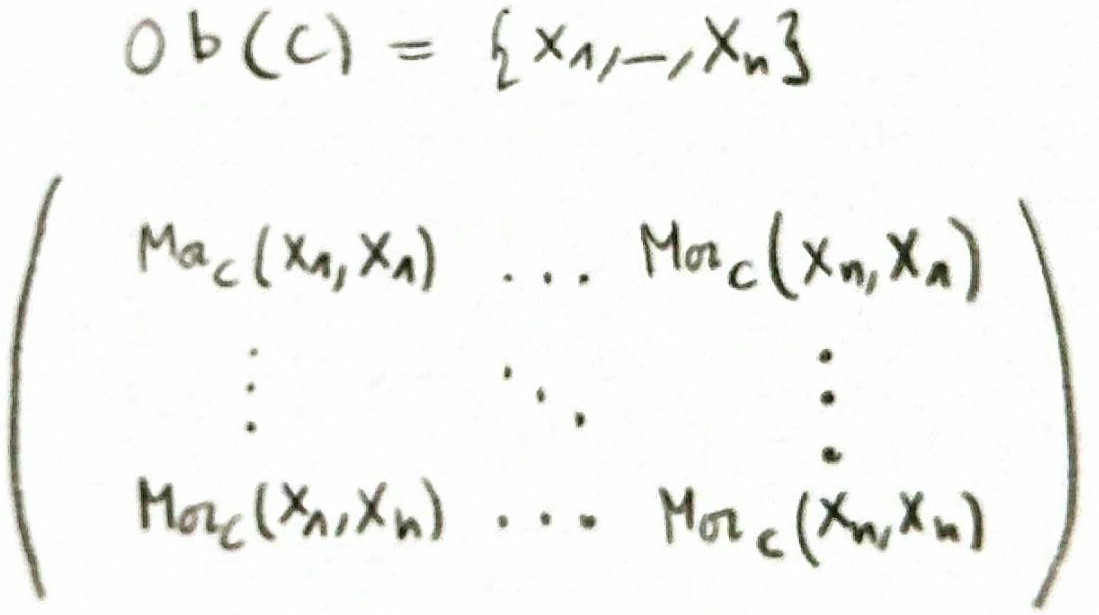 Ob(C) = {X₁,–,Xₙ}
Mac(X₁,X₁) ... Morc(Xₙ,X₁)
⋮ ⋱ ⋮
Morc(X₁,Xₙ) ... Morc(Xₙ,Xₙ)